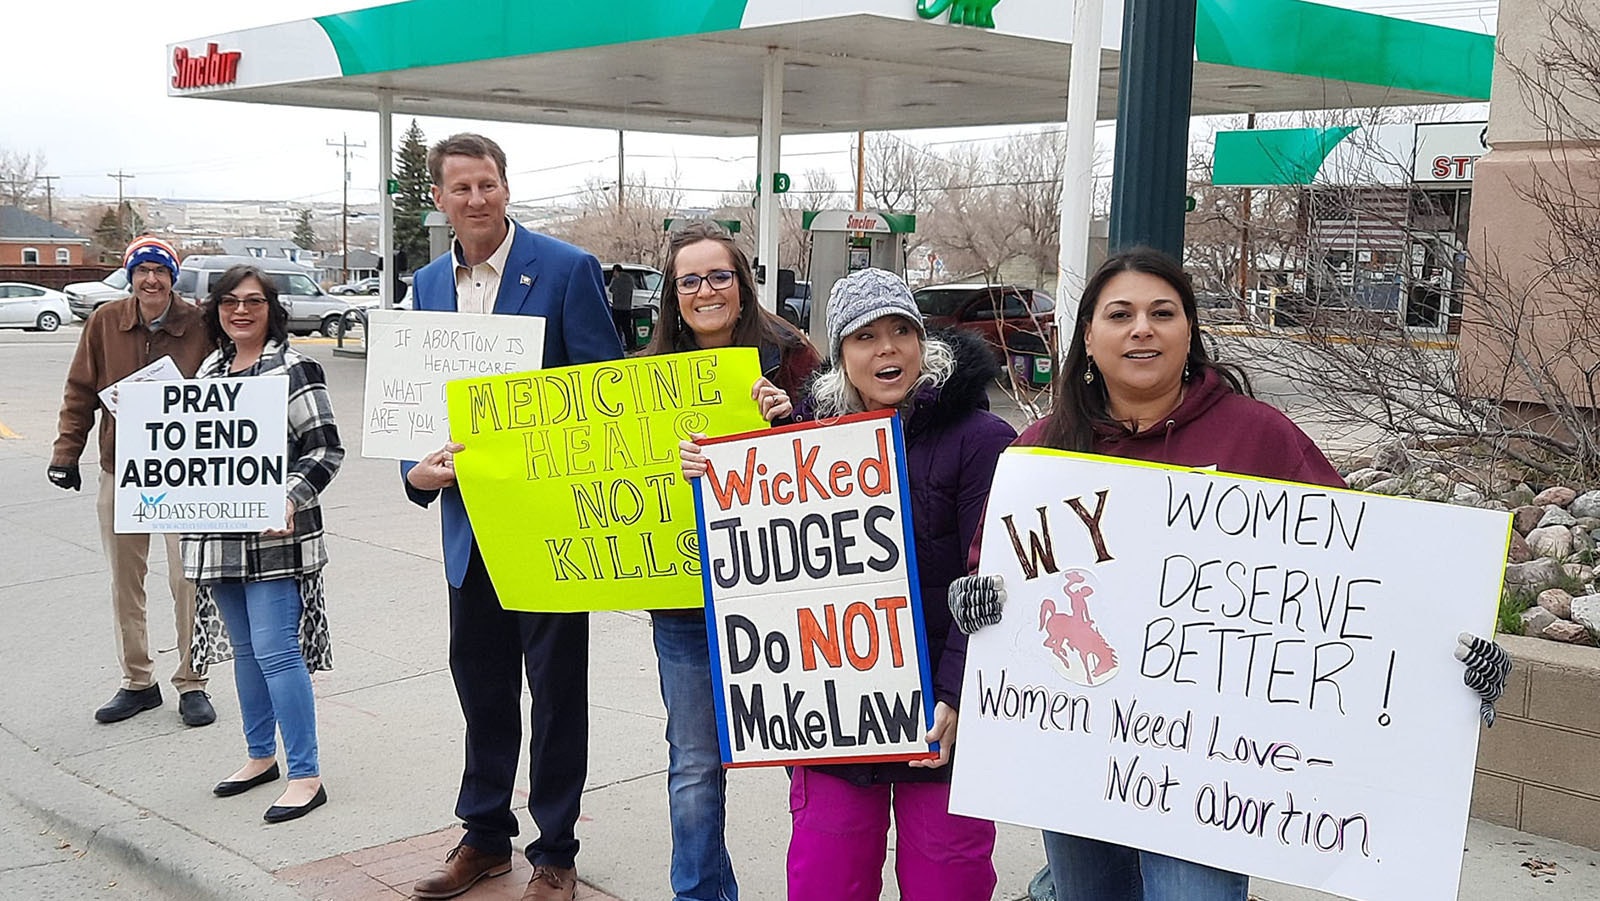 Sinclair
3
Sinclair
ST
PRAY
TO END
ABORTION
40 DAYS FOR LIFE
WWW.40DAYSFORLIFE.COM
IF ABORTION IS
HEALTHCARE
WHAT
ARE YOU
MEDICINE
HEALS
NOT
KILLS
Wicked
JUDGES
Do NOT
Make LAW
WY WOMEN
DESERVE
BETTER!
Women Need Love-
Not abortion.